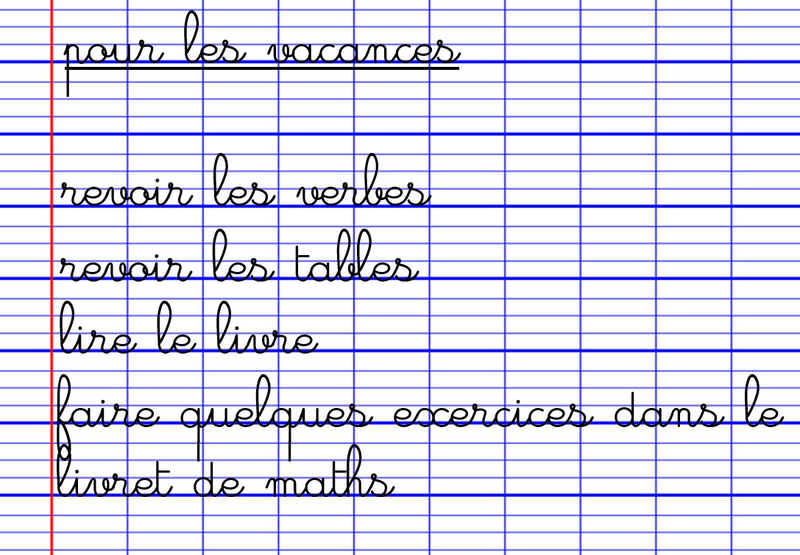 pour les vacances
revoir les verbes
revoir les tables
lire le livre
faire quelques exercices dans le
livret de maths